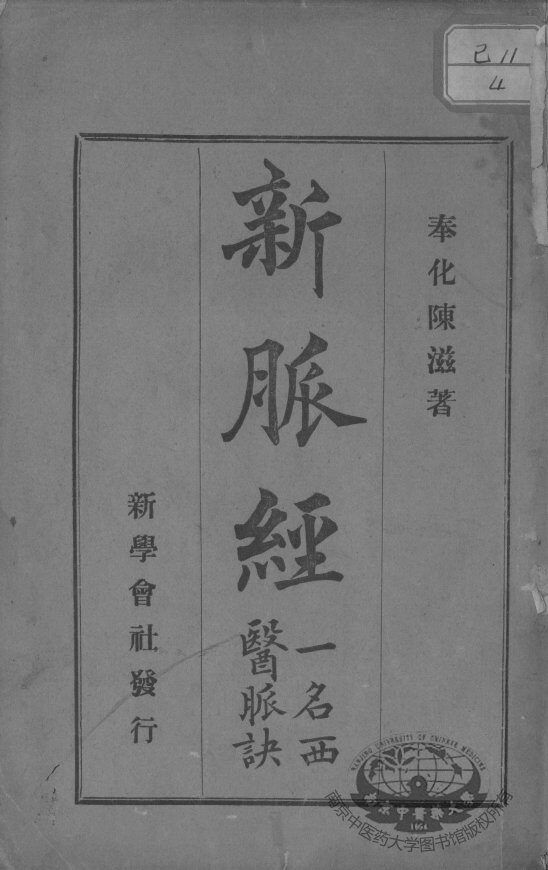 己11
4
奉化陳滋著
新脈經
一名西
醫脈訣
新學會社發行
NANJING UNIVERSITY OF CHINESE MEDICINE
南京中醫藥大學
1954
南京中医药大学图书馆版权所有